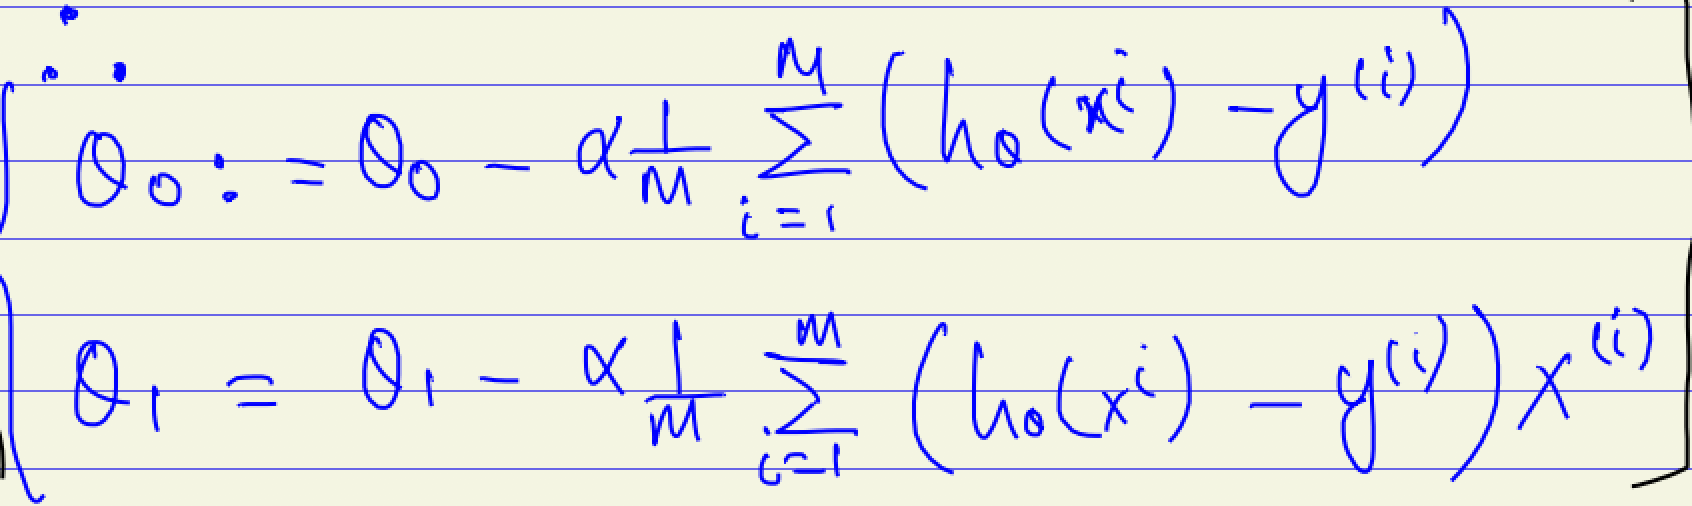 ∴
θ₀ := θ₀ - α 1/M ∑_{i=1}^{M} (h_θ(x^i) - y^(i))
θ₁ = θ₁ - α 1/M ∑_{i=1}^{M} (h_θ(x^i) - y^(i)) x^(i)